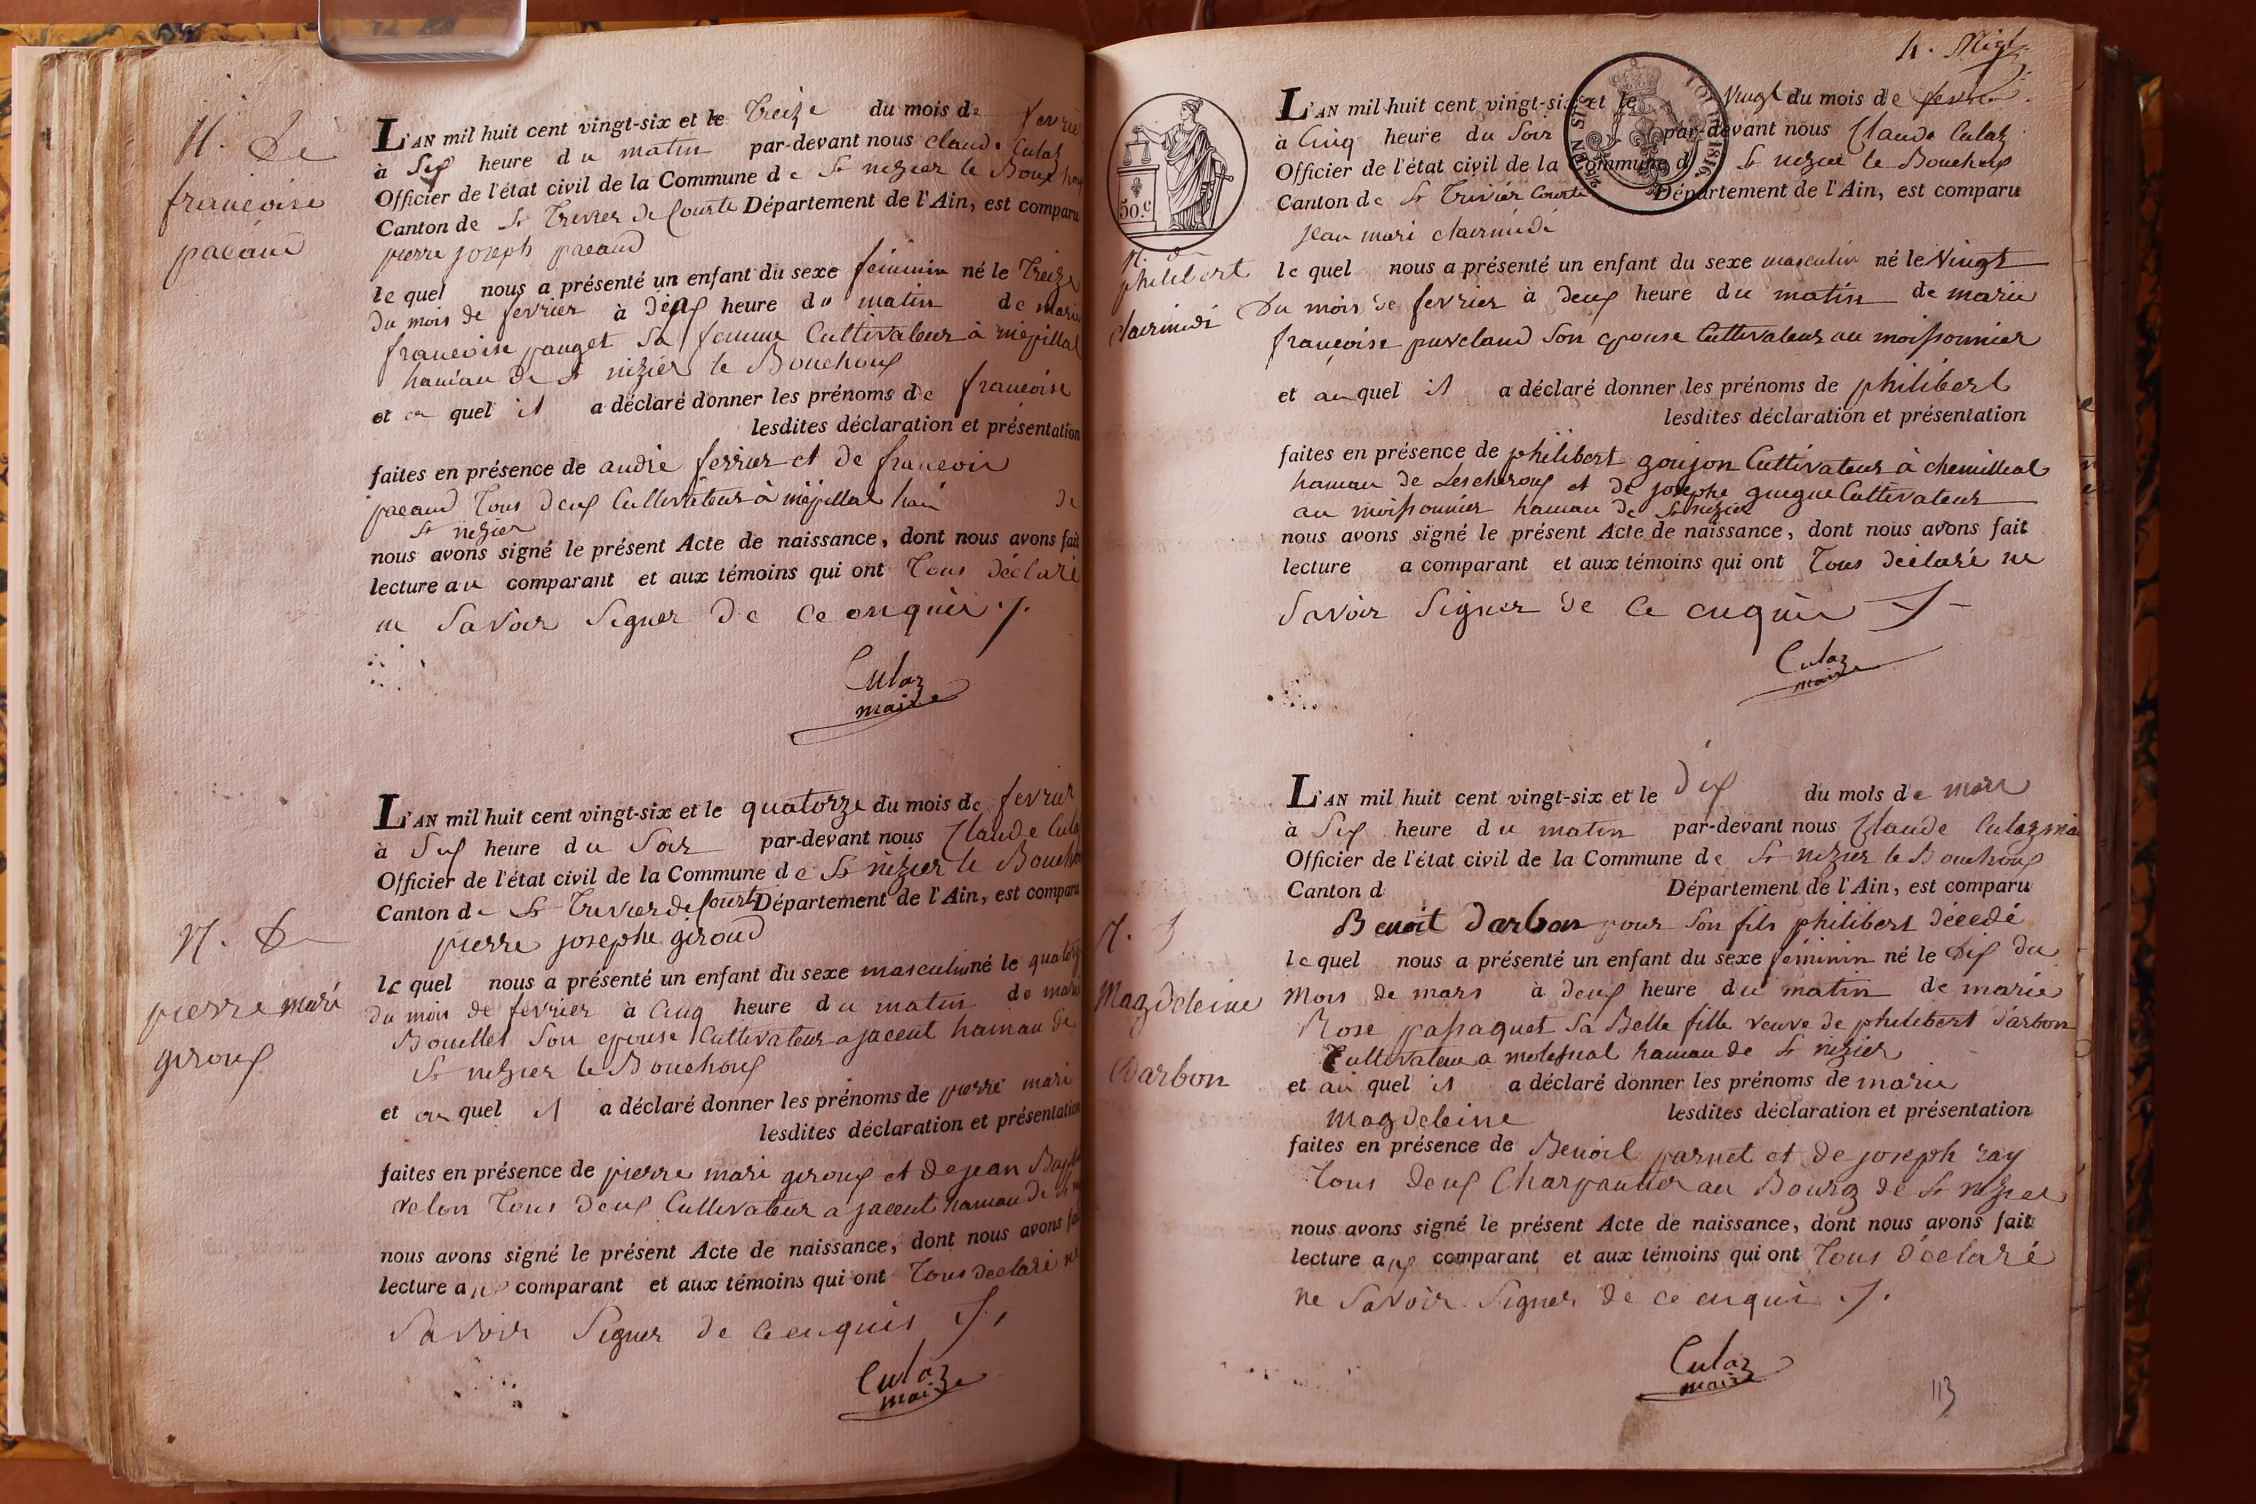 N. de
francoise
pacaud
L'AN mil huit cent vingt-six et le Treize du mois de fevrier
à Six heure du matin par-devant nous claude Culaz
Officier de l'état civil de la Commune de St nezier le Bouchoux
Canton de St Trivier de Courte Département de l'Ain, est comparu
pierre joseph pacaud
le quel nous a présenté un enfant du sexe féminin né le Treize
Du mois de fevrier à deux heure du matin de marie
francoise pauget sa femme Cultivateur à mépillat
hamau De St nizier le Bouchoux
et au quel il a déclaré donner les prénoms de francoise
lesdites déclaration et présentation
faites en présence de andré ferrier et de francois
pacaud Tous deux Cultivateur à mépillat de
St nezier
nous avons signé le présent Acte de naissance, dont nous avons fait
lecture au comparant et aux témoins qui ont Tous déclaré
ne Savoir Signer De Ce enquis
Culaz
maire
N. De
pierre mari
giroux
L'AN mil huit cent vingt-six et le quatorze du mois de fevrier
à Six heure du Soir par-devant nous Claude Culaz
Officier de l'état civil de la Commune de St nizier le Bouchoux
Canton de St Trivier de Courte Département de l'Ain, est comparu
pierre josephe giroud
le quel nous a présenté un enfant du sexe masculin né le quatorze
Du mois de fevrier à Cinq heure du matin de marie
Bouillet Son epouse Cultivateur a jacent hamau de
St nezier le Bouchoux
et au quel il a déclaré donner les prénoms de pierre mari
lesdites déclaration et présentation
faites en présence de pierre mari giroux et de jean
velon Tous deux Cultivateur a jacent hamau de
nous avons signé le présent Acte de naissance, dont nous avons fait
lecture aux comparant et aux témoins qui ont Tous declaré ne
Savoir Signer de Ce enquis
Culaz
maire
50.c
N. de
philibert
clairmidi
L'AN mil huit cent vingt-six et le Vingt du mois de fevrier
à Cinq heure du Soir par-devant nous Claude Culaz
Officier de l'état civil de la Commune de St nezier le Bouchoux
Canton de St Trivier Courte Département de l'Ain, est comparu
jean mari clairmidi
le quel nous a présenté un enfant du sexe masculin né le Vingt
Du mois de fevrier à deux heure du matin de marie
françoise purclaud Son epouse Cultivateur au moissonnier
et au quel il a déclaré donner les prénoms de philibert
lesdites déclaration et présentation
faites en présence de philibert goujon Cultivateur à chemilleat
hamau de Lescheroux et de josephe guegue Cultivateur
au moissonnier hamau de St nezier
nous avons signé le présent Acte de naissance, dont nous avons fait
lecture a comparant et aux témoins qui ont Tous déclaré ne
Savoir Signer de Ce enquis
Culaz
maire
N.
Magdeleine
Darbon
L'AN mil huit cent vingt-six et le Dix du mois de mars
à Six heure du matin par-devant nous Claude Culaz
Officier de l'état civil de la Commune de St nezier le Bouchoux
Canton d Département de l'Ain, est comparu
Benoit Darbon pour Son fils philibert décedé
le quel nous a présenté un enfant du sexe féminin né le Dix du
Mois de mars à deux heure du matin de marie
Rose passaquet Sa Belle fille veuve de philibert d'arbon
Cultivateur a hamau de St nizier
et au quel il a déclaré donner les prénoms de marie
Magdeleine lesdites déclaration et présentation
faites en présence de Benoit parnet et de joseph ray
Tous deux Charpantier au Bourg de St nezier
nous avons signé le présent Acte de naissance, dont nous avons fait
lecture aux comparant et aux témoins qui ont Tous déclaré
ne Savoir Signer de ce enquis
Culaz
maire
113